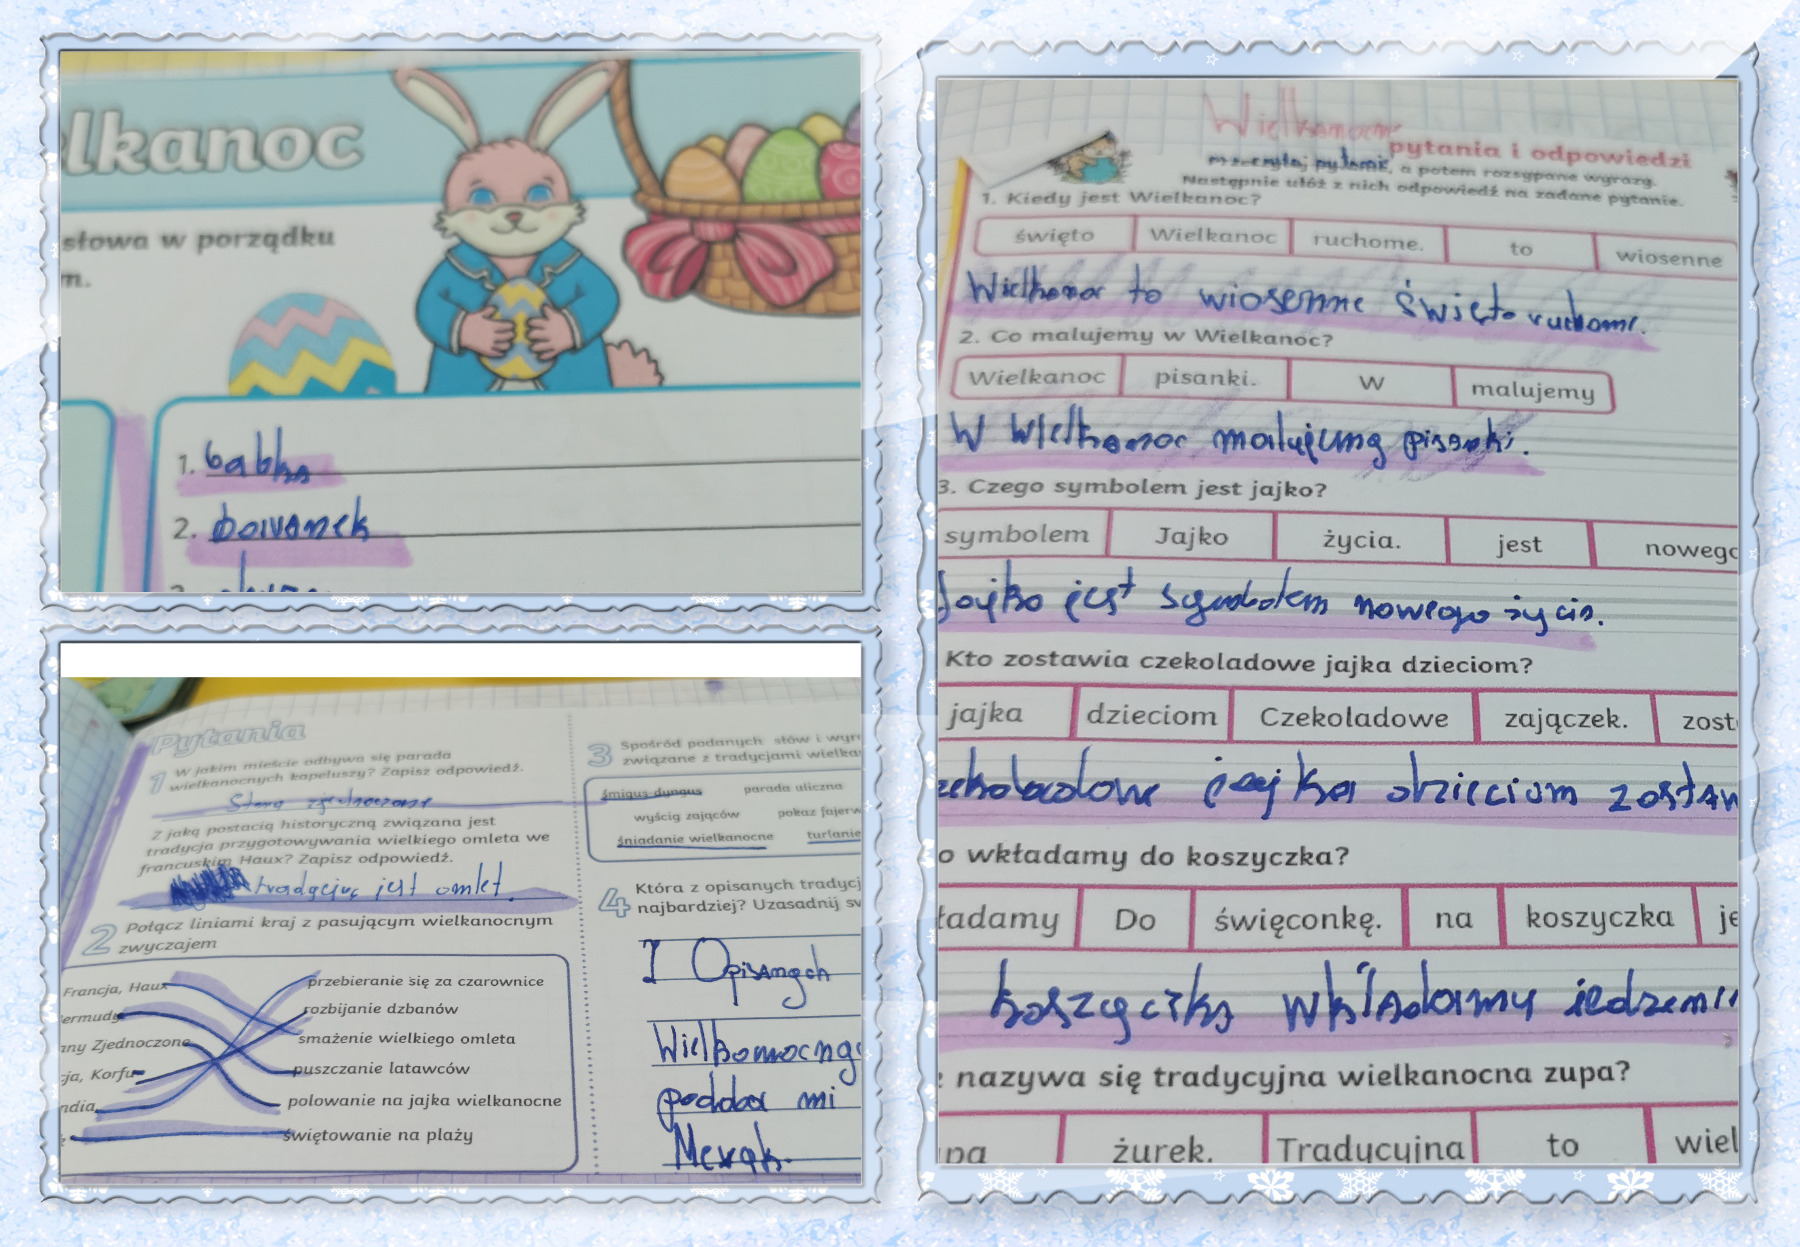 lkanoc
słowa w porządku
m.
1. babka
2. baranek
Pytania
1 W jakim mieście odbywa się parada
wielkanocnych kapeluszy? Zapisz odpowiedź.
Stany zjednoczone
Z jaką postacią historyczną związana jest
tradycja przygotowywania wielkiego omleta we
francuskim Haux? Zapisz odpowiedź.
tradycją jest omlet.
2 Połącz liniami kraj z pasującym wielkanocnym
zwyczajem
Francja, Haux przebieranie się za czarownice
ermudy rozbijanie dzbanów
any Zjednoczone smażenie wielkiego omleta
cja, Korfu puszczanie latawców
ndia polowanie na jajka wielkanocne
świętowanie na plaży
3 Spośród podanych słów i wyr
związane z tradycjami wielka
śmigus-dyngus parada uliczna
wyścig zajęcy pokaz fajerw
śniadanie wielkanocne turlanie
4 Która z opisanych tradycj
najbardziej? Uzasadnij sw
Opisanych
Wielkanocny
podoba mi
Wielkanocne
pytania i odpowiedzi
pytanie, a potem rozsypane wyrazy.
Następnie ułóż z nich odpowiedź na zadane pytanie.
1. Kiedy jest Wielkanoc?
święto Wielkanoc ruchome. to wiosenne
Wielkanoc to wiosenne święto ruchome.
2. Co malujemy w Wielkanoc?
Wielkanoc pisanki. W malujemy
W Wielkanoc malujemy pisanki.
3. Czego symbolem jest jajko?
symbolem Jajko życia. jest nowego
Jajko jest symbolem nowego życia.
Kto zostawia czekoladowe jajka dzieciom?
jajka dzieciom Czekoladowe zajączek. zost
zekoladowe jajka dzieciom zostaw
o wkładamy do koszyczka?
ładamy Do święconkę. na koszyczka je
koszyczka wkładamy jedzeni
nazywa się tradycyjna wielkanocna zupa?
upa żurek. Tradycyjna to wiel